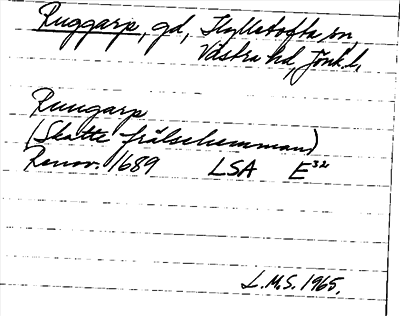 Ruggarp, gd, Kylletofta sn,
Västra hd, Jönk.l.
Rungarp
(Skatte frälsehemman)
Renov. 1689 LSA E³²
L.M.S. 1965.